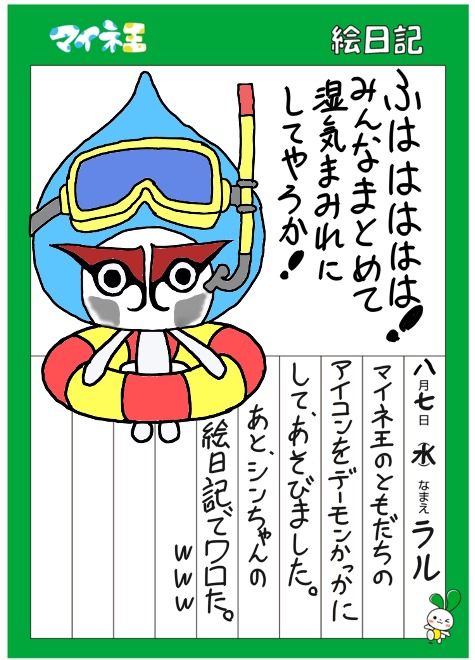 マイネ王
絵日記
ふはははははは!
みんなまとめて
湿気まみれに
してやろか!
八月七日 水 なまえ ラル
マイネ王のともだちの
アイコンをデーモンかっかに
して、あそびました。
あと、シンちゃんの
絵日記でワロた。
www